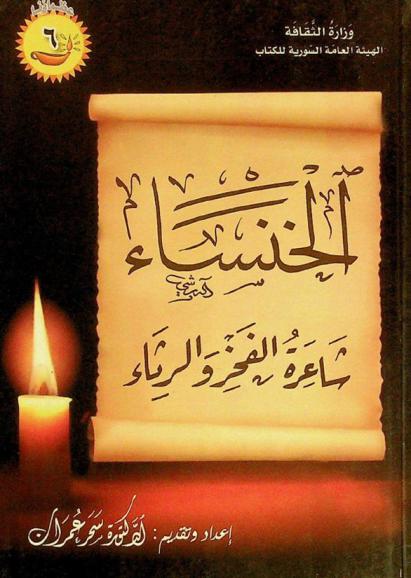 وزارة الثقافة
الهيئة العامة السورية للكتاب
٦
الخنساء
شاعرة الفخر والرثاء
إعداد وتقديم: الدكتورة سحر عمران